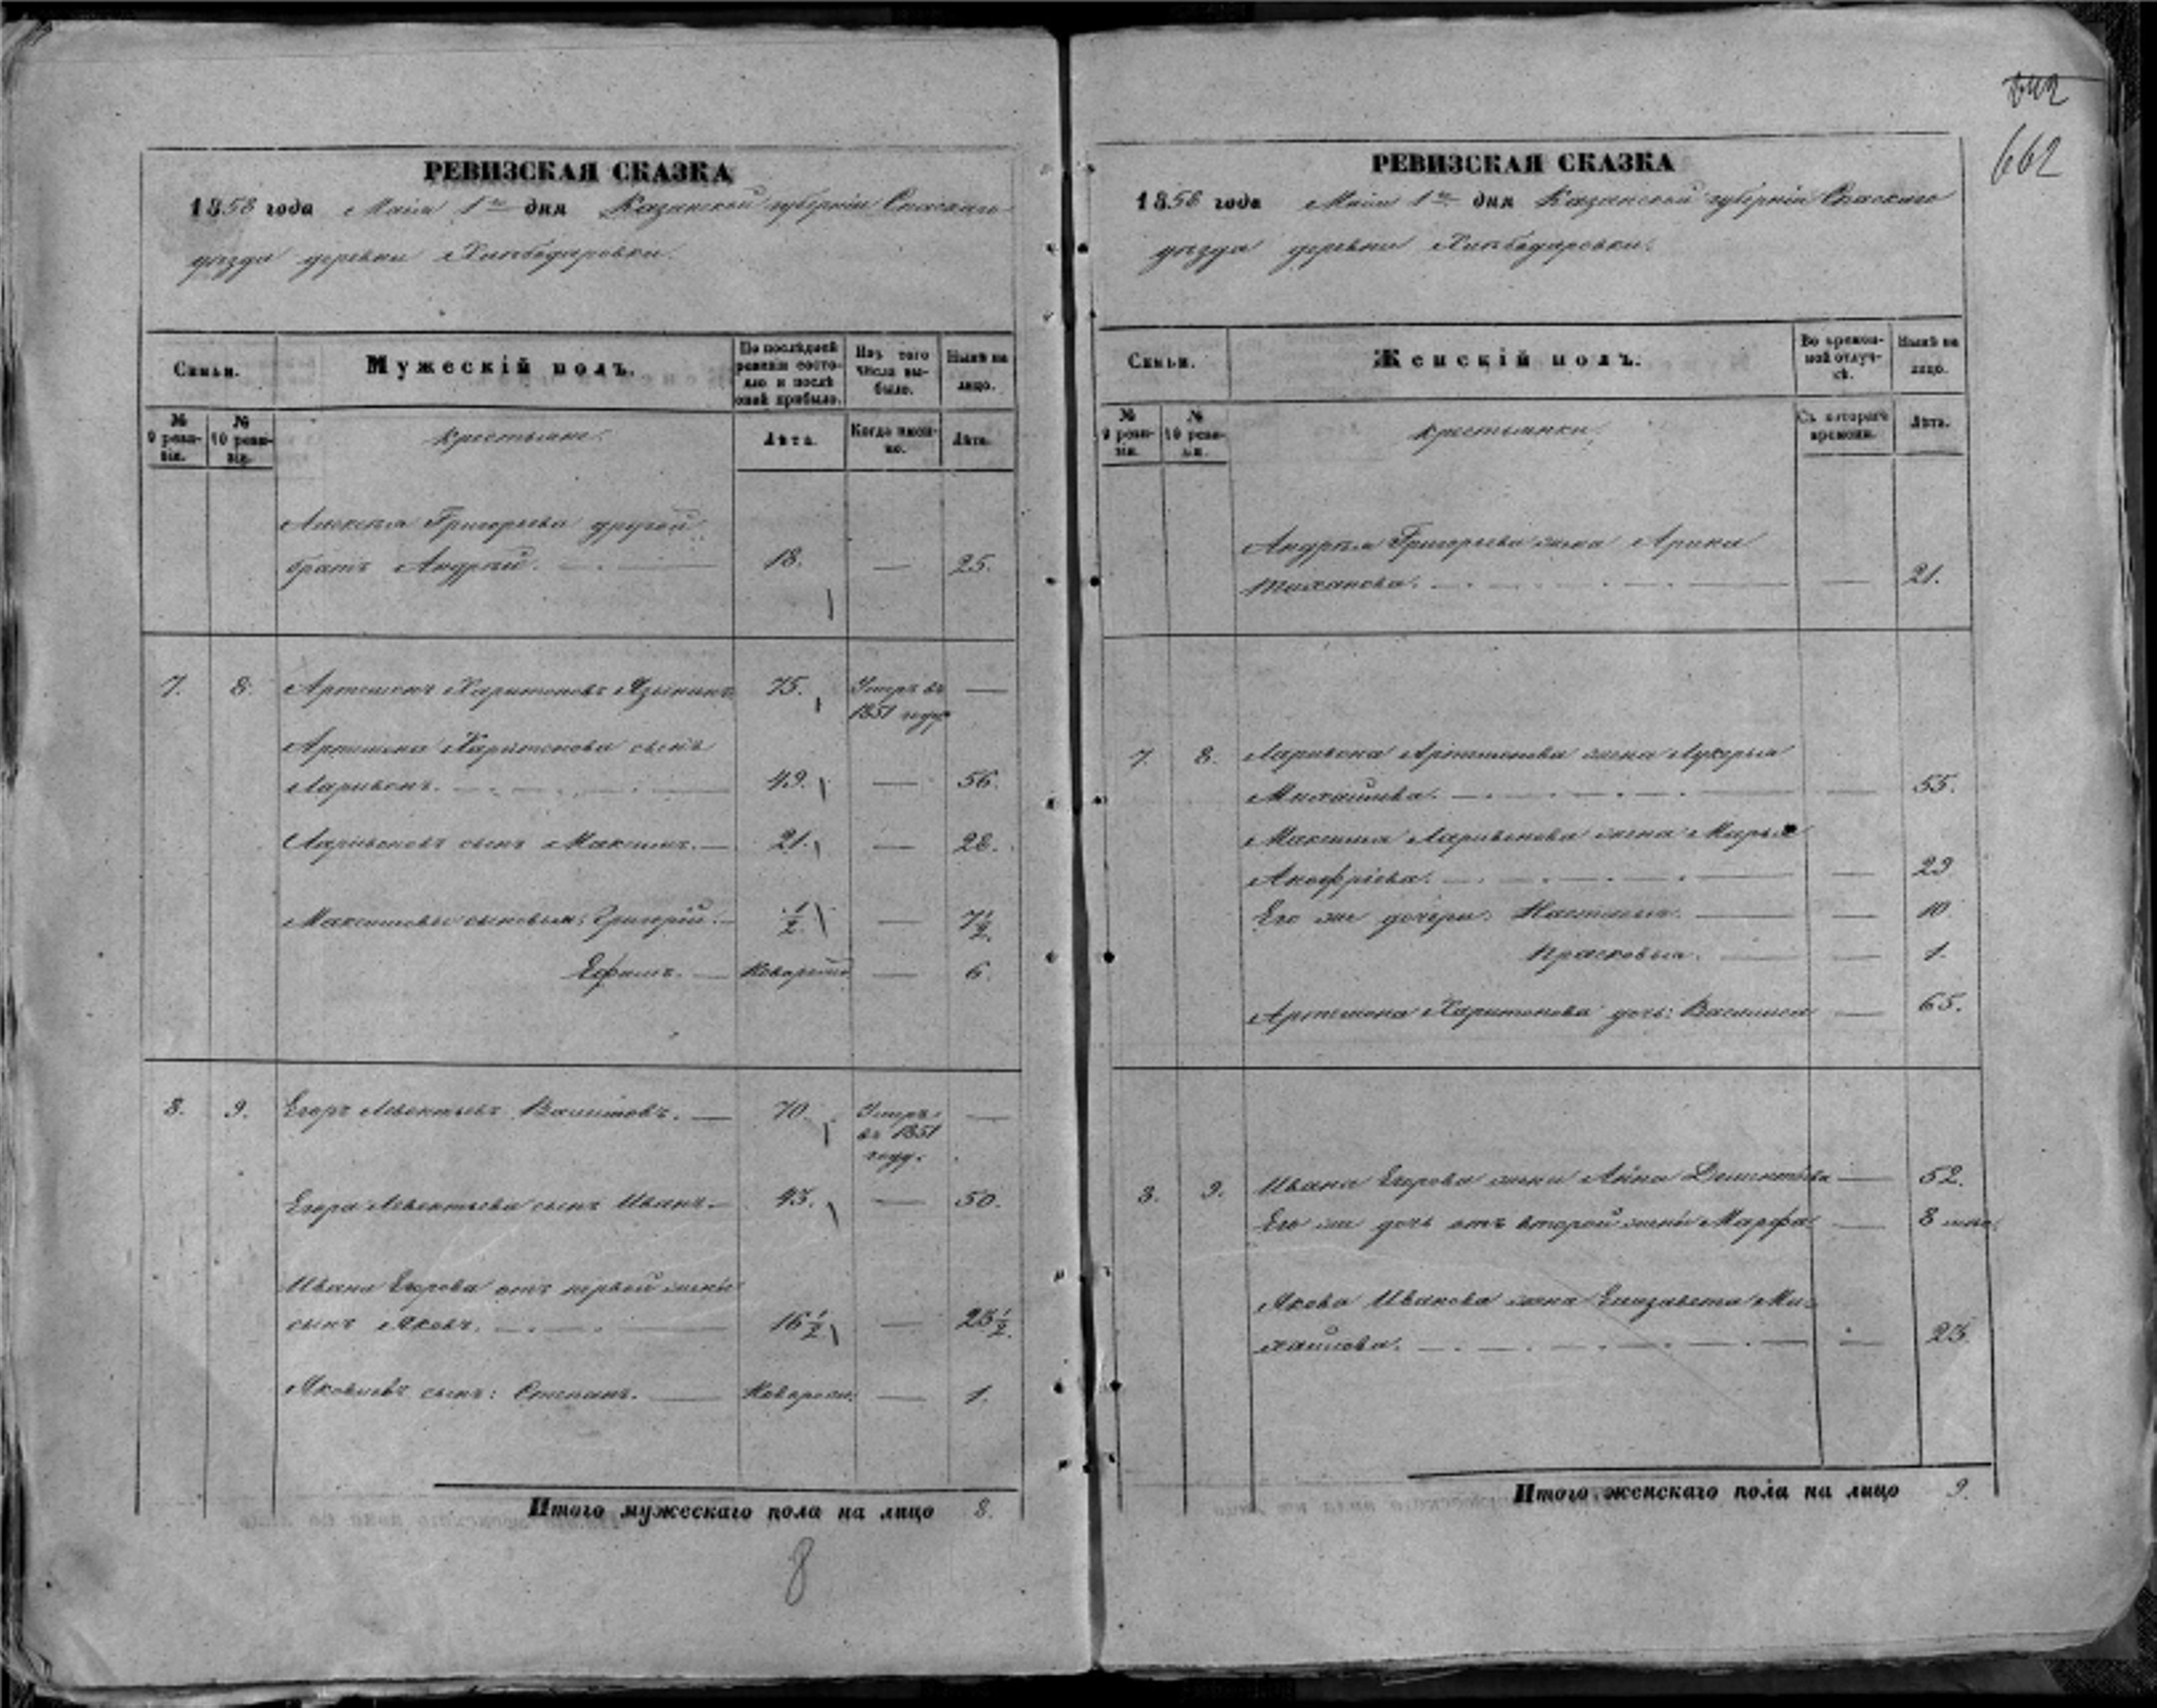 842
662
РЕВИЗСКАЯ СКАЗКА
1858 года Маия 1го дня Казанской губернiи Спаскаго
уѣзда деревни
Семьи.
Мужескiй полъ.
По послѣдней ревизiи состояло и послѣ оной прибыло.
Изъ того числа выбыло.
Нынѣ на лицо.
№ 9 ревизiи.
№ 10 ревизiи.
крестьяне.
Лѣта.
Когда именно.
Лѣта.
Алексѣя Григорьева другой
братъ Андрей. — 18. — 25.
7. 8. Артемонъ Харитоновъ Языкинъ 75. Умеръ въ —
1851 году
Артемона Харитонова сынъ
Ларивонъ. — 49. — 56.
Ларивоновъ сынъ Максимъ. — 21. — 28.
Максимовы сыновья: Григорiй. — 1/2 — 7 1/2
Ефимъ. — Новорожд — 6.
8. 9. Егоръ Леонтьевъ — 70. Умеръ —
въ 1851
году.
Егора Леонтьева сынъ Иванъ. — 43. — 50.
Ивана Егорова отъ первой жены
сынъ Яковъ. — 16 1/2 — 23 1/2
Яковлевъ сынъ: Степанъ. — Новорож. — 1.
Итого мужескаго пола на лицо 8.
8
РЕВИЗСКАЯ СКАЗКА
1858 года Маия 1го дня Казанской губернiи Спаскаго
уѣзда деревни
Семьи.
Женскiй полъ.
Во временной отлучкѣ.
Нынѣ на лицо.
№ 9 ревизiи.
№ 10 ревизiи.
крестьянки.
Съ котораго времени.
Лѣта.
Андрея Григорьева жена Арина
— — 21.
7. 8. Ларивона Артемонова жена Лукерья
Михайлова. — — 55.
Максима Ларивонова жена Марья
Анофрiева. — — 29
Его же дочери: Настасья. — — 10
Прасковья. — — 1.
Артемона Харитонова дочь: Василиса — 65.
8. 9. Ивана Егорова жена Анна Дементьева — 52.
Его же дочь отъ второй жены Марфа — 8 мѣс.
Якова Иванова жена Елизавета Ми-
хайлова. — — 23.
Итого женскаго пола на лицо 9.